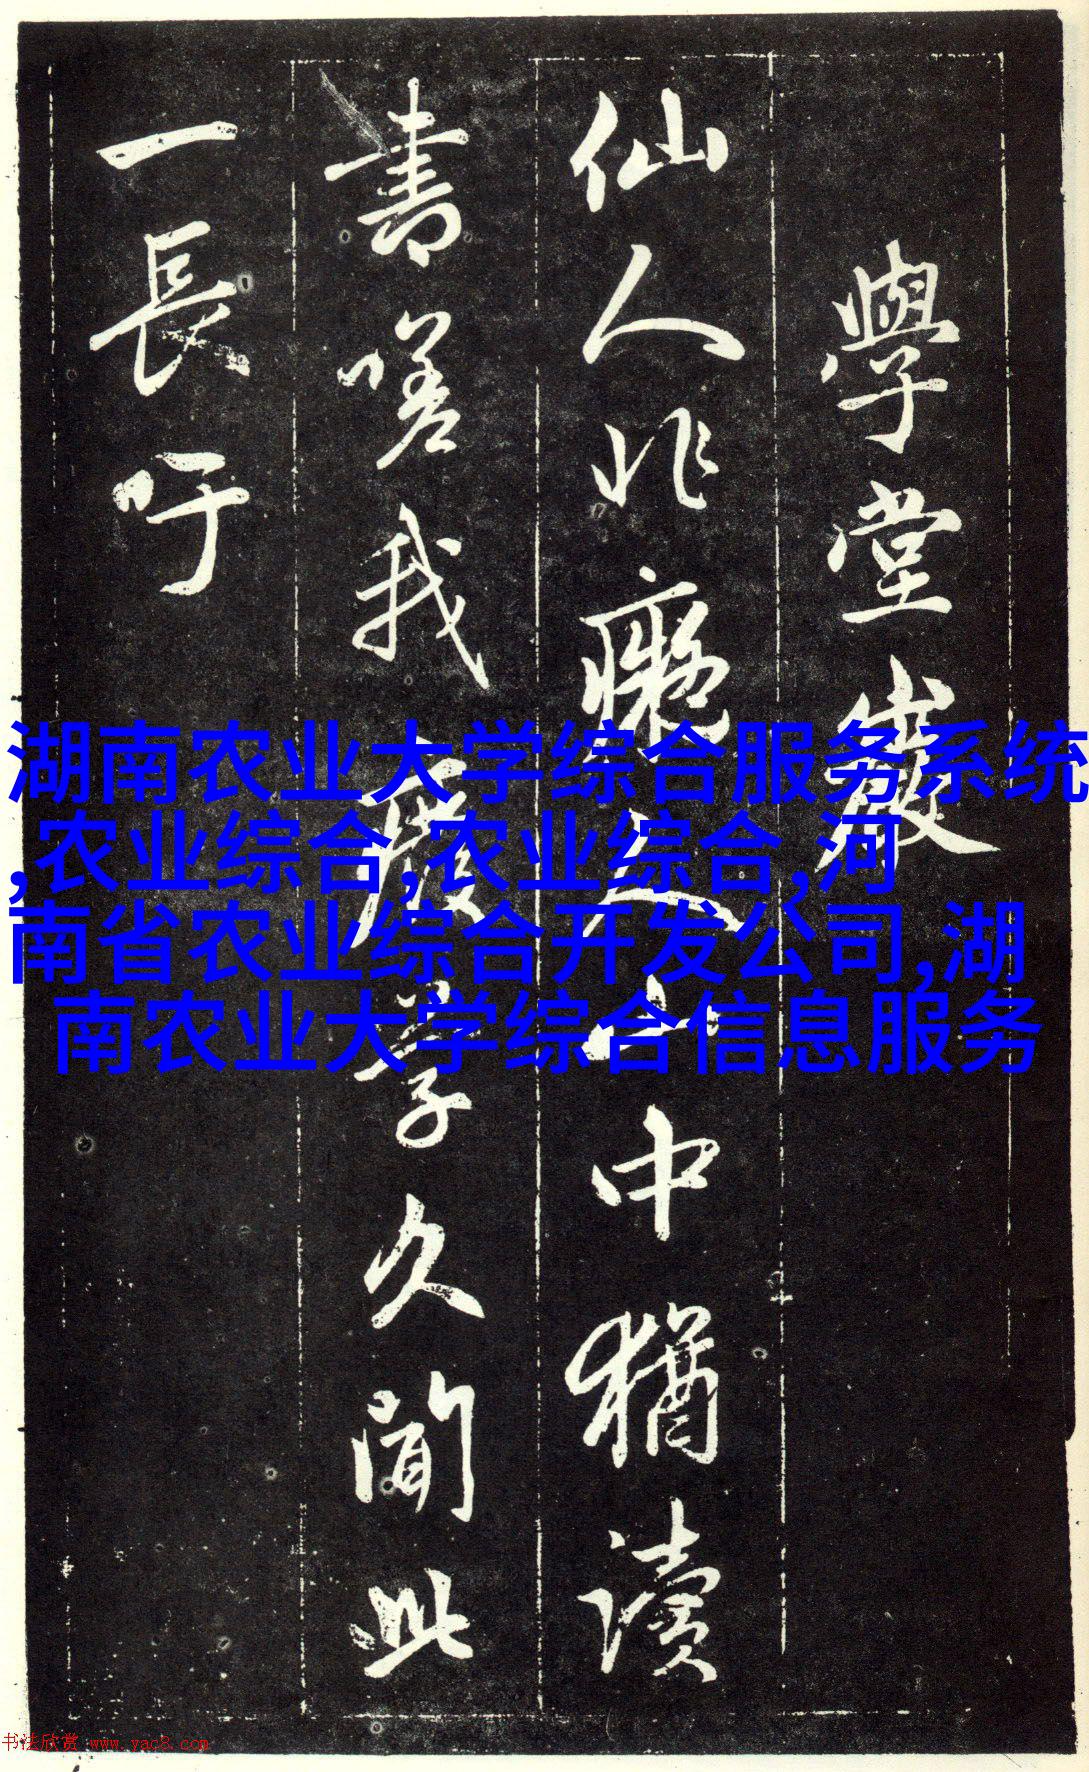 學堂巖
仙人非癡人山中猶讀
書嗟我廢學久聞此
一長吁
湖南农业大学综合服务系统
,农业综合,农业综合,河
南省农业综合开发公司,湖
南农业大学综合信息服务
书法欣赏 www.yac8.com